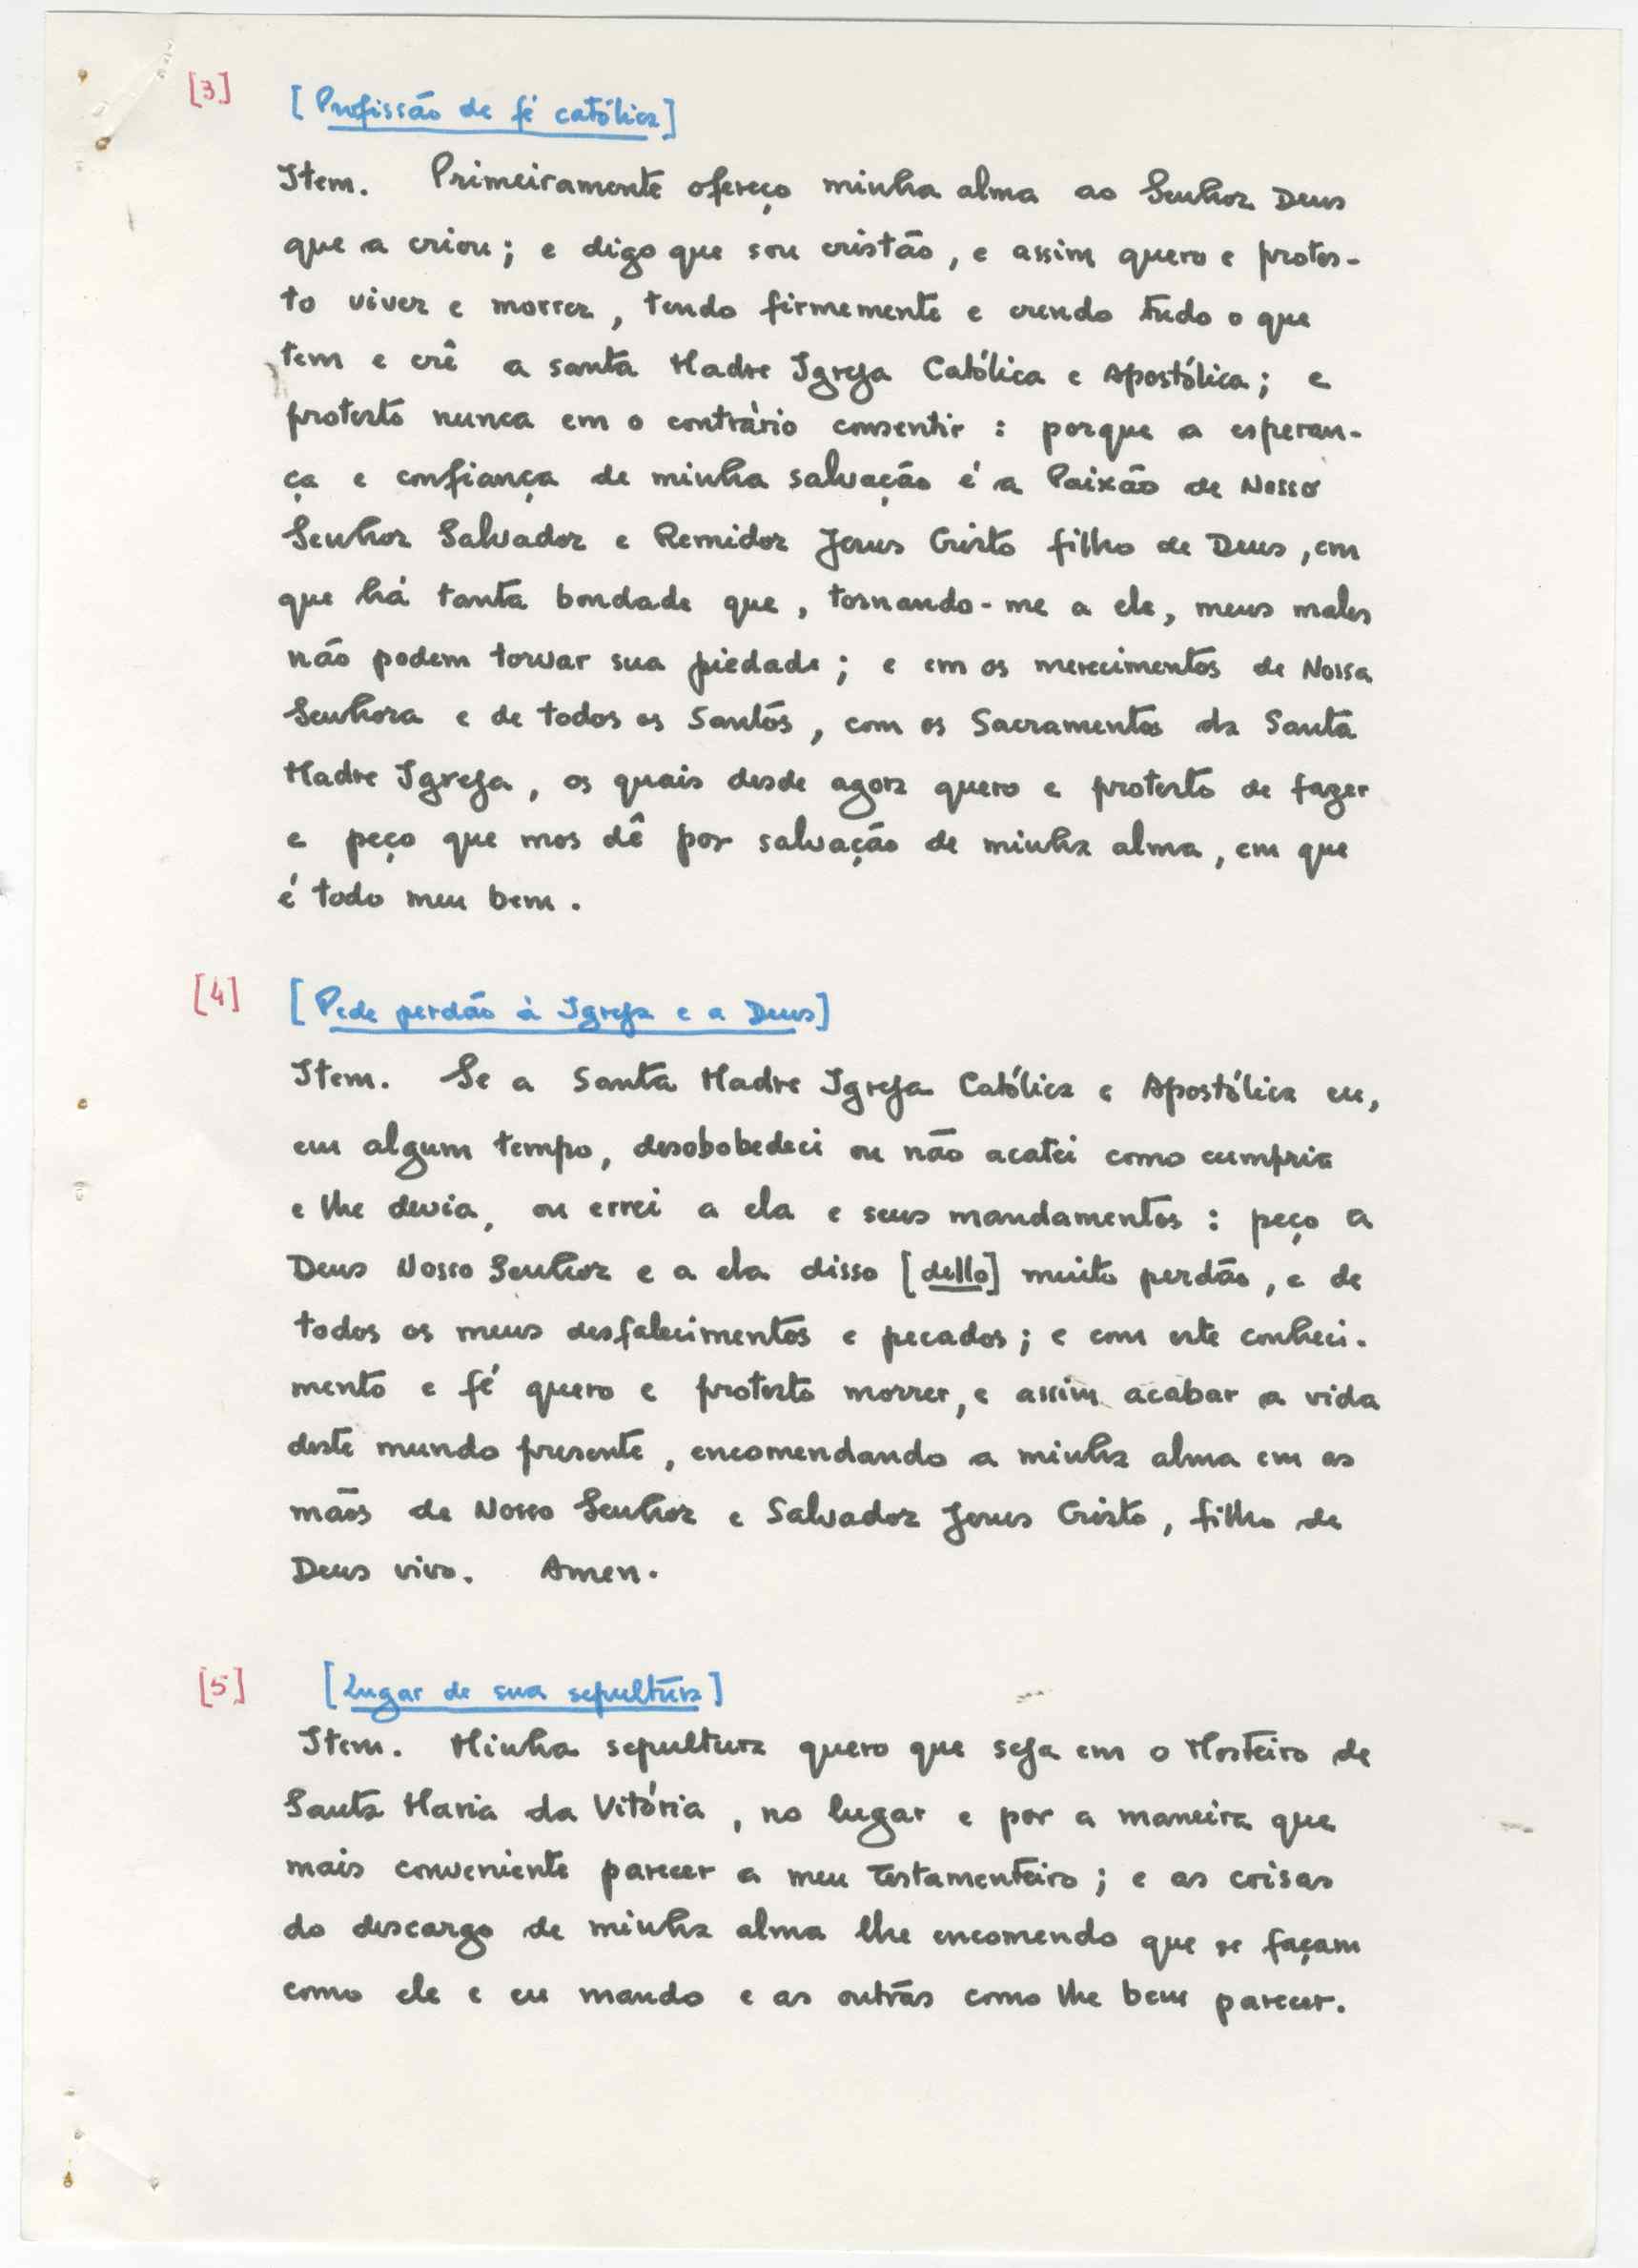 [3] [Profissão de fé católica]
Item. Primeiramente ofereço minha alma ao Senhor Deus
que a criou; e digo que sou cristão, e assim quero e protes-
to viver e morrer, tendo firmemente e crendo tudo o que
tem e crê a santa Madre Igreja Católica e Apostólica; e
protesto nunca em o contrário consentir: porque a esperan-
ça e confiança de minha salvação é a Paixão de Nosso
Senhor Salvador e Remidor Jesus Cristo filho de Deus, em
que há tanta bondade que, tornando-me a ele, meus males
não podem torvar sua piedade; e em os merecimentos de Nossa
Senhora e de todos os Santos, com os Sacramentos da Santa
Madre Igreja, os quais desde agora quero e protesto de fazer
e peço que mos dê por salvação de minha alma, em que
é todo meu bem.
[4] [Pede perdão à Igreja e a Deus]
Item. Se a Santa Madre Igreja Católica e Apostólica eu,
em algum tempo, desobobedeci ou não acatei como cumpria
e lhe devia, ou errei a ela e seus mandamentos: peço a
Deus Nosso Senhor e a ela disso [dello] muito perdão, e de
todos os meus desfalecimentos e pecados; e com este conheci-
mento e fé quero e protesto morrer, e assim acabar a vida
deste mundo presente, encomendando a minha alma em as
mãos de Nosso Senhor e Salvador Jesus Cristo, filho de
Deus vivo. Amen.
[5] [Lugar de sua sepultura]
Item. Minha sepultura quero que seja em o Mosteiro de
Santa Maria da Vitória, no lugar e por a maneira que
mais conveniente parecer a meu testamenteiro; e as coisas
do descargo de minha alma lhe encomendo que se façam
como ele e eu mando e as outras como lhe bem parecer.